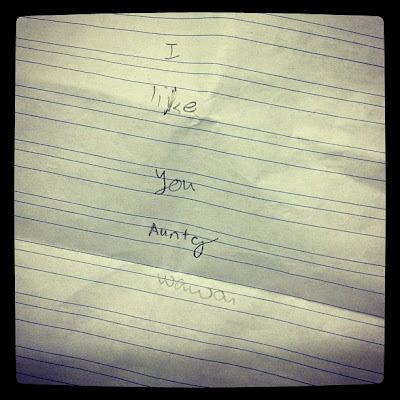 I
like
you
Aunty
Wawai